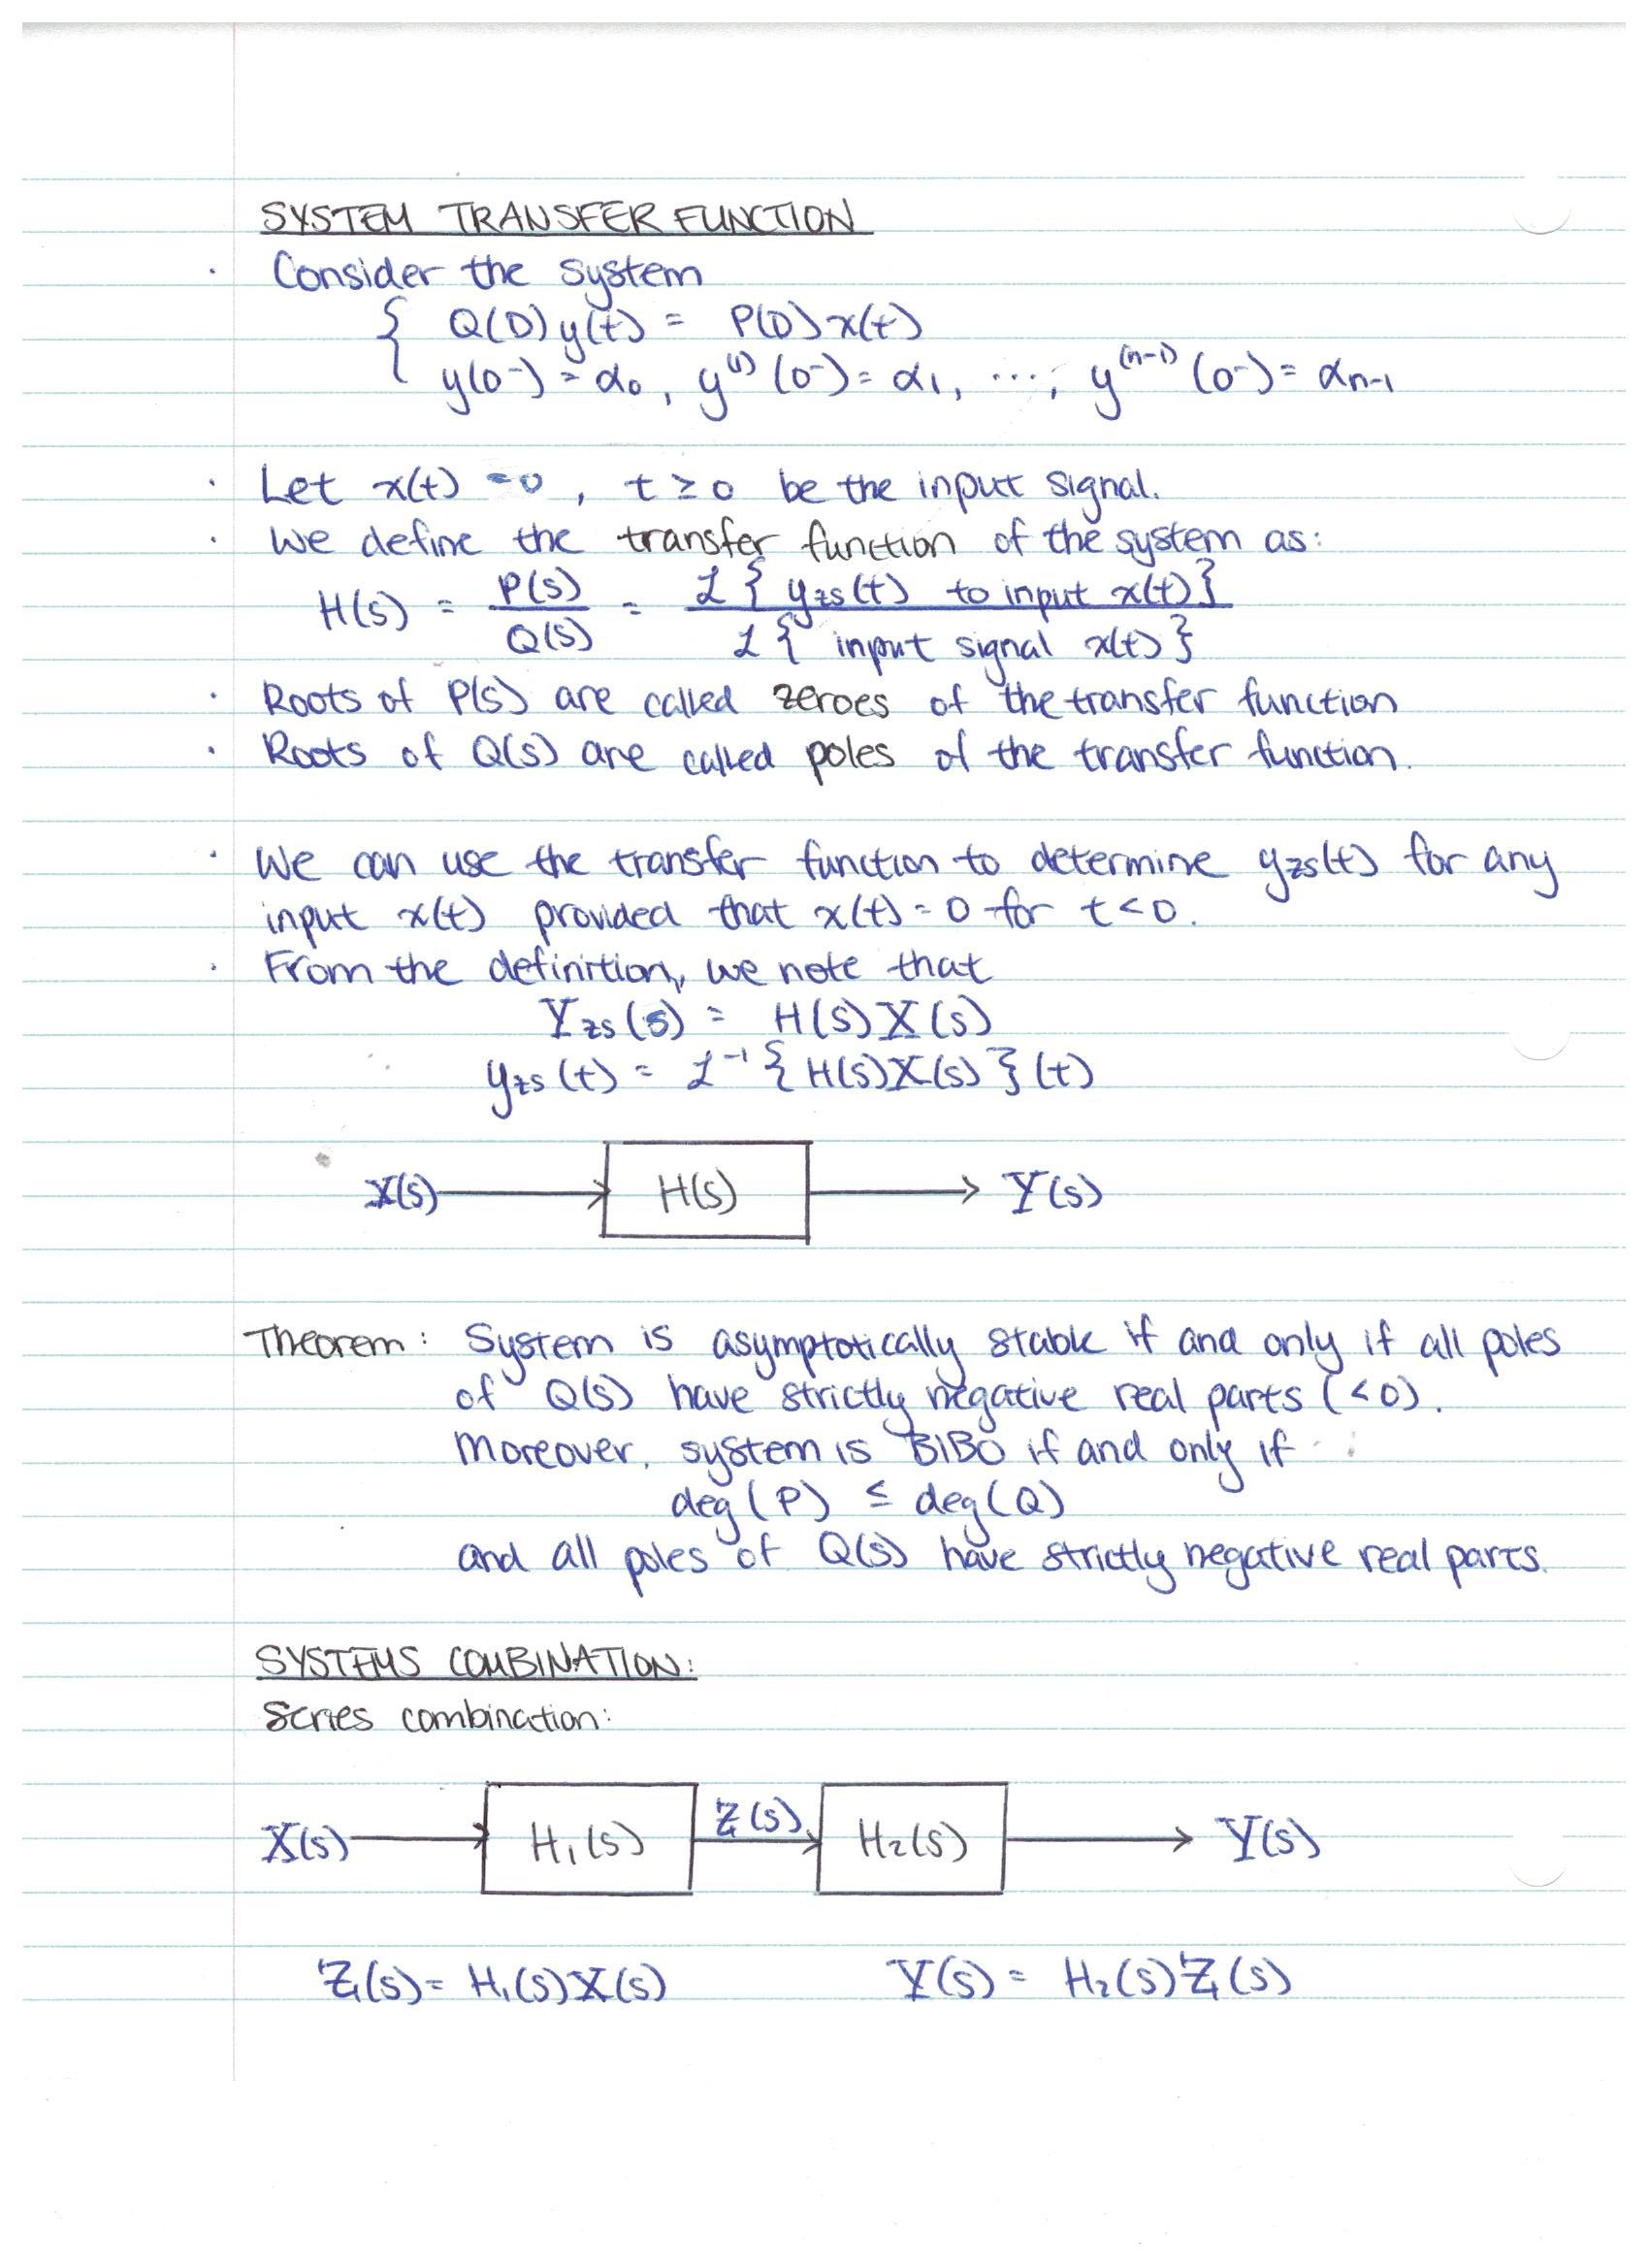 SYSTEM TRANSFER FUNCTION
· Consider the system
{ Q(D)y(t) = P(D)x(t)
y(0⁻) = α₀, y⁽¹⁾(0⁻) = α₁, ..., y⁽ⁿ⁻¹⁾(0⁻) = αₙ₋₁
· Let x(t) = 0, t ≥ 0 be the input signal.
· We define the transfer function of the system as:
H(s) = P(s)/Q(s) = ℒ{ yzs(t) to input x(t)} / ℒ{ input signal x(t)}
· Roots of P(s) are called zeroes of the transfer function
· Roots of Q(s) are called poles of the transfer function.
· We can use the transfer function to determine yzs(t) for any
input x(t) provided that x(t) = 0 for t < 0.
· From the definition, we note that
Yzs(s) = H(s)X(s)
yzs(t) = ℒ⁻¹{H(s)X(s)}(t)
X(s) → H(s) → Y(s)
Theorem: System is asymptotically stable if and only if all poles
of Q(s) have strictly negative real parts (<0).
Moreover, system is BIBO if and only if
deg(P) ≤ deg(Q)
and all poles of Q(s) have strictly negative real parts.
SYSTEMS COMBINATION:
Series combination:
X(s) → H₁(s) Z(s) → H₂(s) → Y(s)
Z(s) = H₁(s)X(s) Y(s) = H₂(s)Z(s)